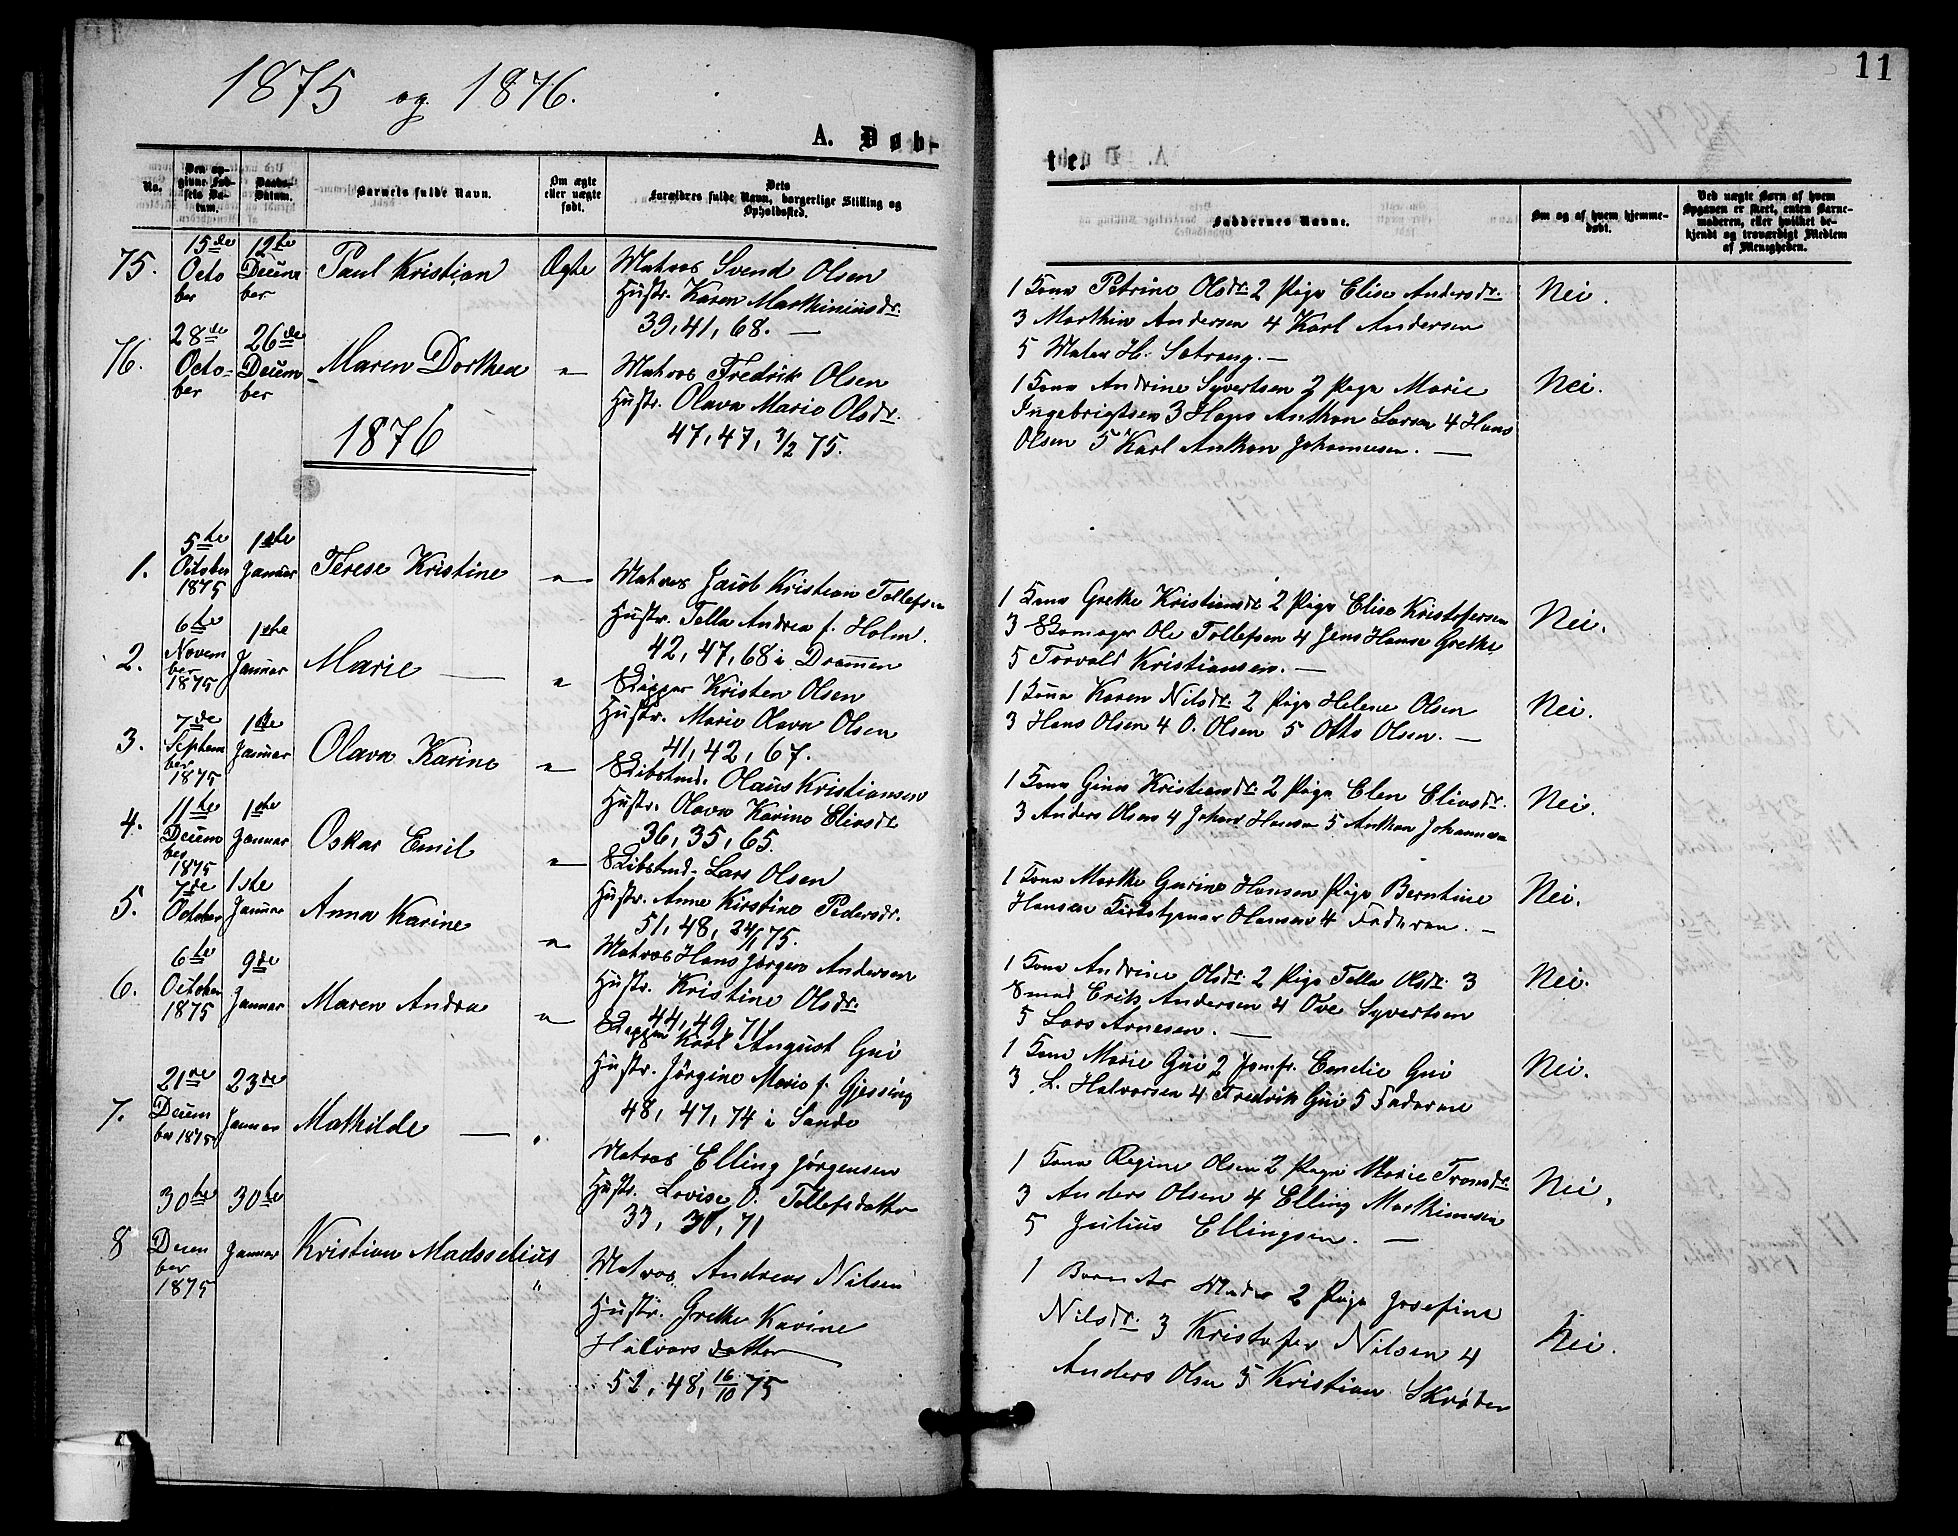 11
1875 og 1876.
A. Døb-
ter.
No.
Den opgivne Fødsels Datum.
Daabs-Datum.
Barnets fulde Navn.
Om ægte eller uægte født.
Dets Forældres fulde Navn, borgerlige Stilling og Opholdssted.
Faddernes Navne.
Om og af hvem hjemmedøbt.
Ved uægte Børn af hvem Opgaven er skeet, enten Barnemoderen, eller hvilket bekjendt og troværdigt Medlem af Menigheden.
75. 15de October 12te December Paul Kristian Ægte
Matros Svend Olsen
Hustr. Karen Marthiniusdr.
39, 41, 68. —
1 Kona Petrine Olsdr. 2 Pige Elise Andersdr.
3 Marthin Andersen 4 Karl Andersen
5 H. Sætrang. —
Nei.
76. 28de October 26de December Maren Dorthea "
Matros Fredrik Olsen
Hustr. Olava Marie Olsdr.
47, 47, 7/2 75.
1 Kona Andrine Syvertsen 2 Pige Marie
Ingebrigtsen 3 Hans Anthon Larsen 4 Hans
Olsen 5 Karl Anthon Johannesen. —
Nei.
1876
1. 5te October 1875 1ste Januar Terese Kristine "
Matros Jacob Kristian Tollefsen
Hustr. Tella Andrea f. Holm.
42, 47, 68 i Drammen
1 Kona Grethe Kristiansdr. 2 Pige Elise Kristofersen
3 Skomager Ole Tollefsen 4 Jens Hansen Grethe
5 Torvald Kristiansen. —
Nei.
2. 6te November 1875 1ste Januar Marie — "
Skipper Kristen Olsen
Hustr. Marie Olava Olsen
41, 42, 67.
1 Kona Karen Nilsdr. 2 Pige Helene Olsen
3 Hans Olsen 4 O. Olsen 5 Otto Olsen. —
Nei.
3. 7de September 1875 1ste Januar Olava Karine "
Skibstmd. Olaus Kristiansen
Hustr. Olava Karine Eliasdr.
36, 35, 65.
1 Kona Gina Kristiansdr. 2 Pige Elen Eliasdr.
3 Anders Olsen 4 Johan Hansen 5 Anthon Johannesen
Nei.
4. 11te December 1875 1ste Januar Oskar Emil "
Skibstmd. Lars Olsen
Hustr. Anne Kirstine Pedersdr.
51, 48, 24/1 75.
1 Kona Marthe Gurine Hansen Pige Berntine
Hansen Kirketjener Hansen 4 Faderen. —
Nei.
5. 7de October 1ste Januar Anna Karine "
Matros Hans Jørgen Andersen
Hustr. Kristine Olsdr.
44, 49, 71
1 Kona Andrine Olsdr. 2 Pige Tella Olsdr. 3
Smed Erik Andersen 4 Ove Syvertsen
5 Lars Arnesen. —
Nei.
6. 6te October 1875 9de Januar Maren Andrea "
Skipper Karl August Gui
Hustr. Jørgine Marie f. Gjessing
48, 47, 74 i Sande
1 Kona Marie Gui 2 Jomfr. Emelie Gui
3 L. Halvorsen 4 Fredrik Gui 5 Faderne
Nei.
7. 21de December 1875 23de Januar Mathilde — "
Matros Elling Jørgensen
Hustr. Lovise O. Tollefsdatter
33, 30, 71
1 Kona Regine Olsen 2 Pige Marie Tronsdr.
3 Anders Olsen 4 Elling Marthinusen
5 Julius Ellingsen. —
Nei.
8 30te December 1875 30te Januar Kristian Madsselius "
Matros Andreas Nilsen
Hustr. Grethe Karine
Halvorsdatter
52, 48, 16/10 75
1 Barnets Moder 2 Pige Josefine
Nilsdr. 3 Kristofer Nilsen 4
Anders Olsen 5 Kristian Skrøder
Nei.